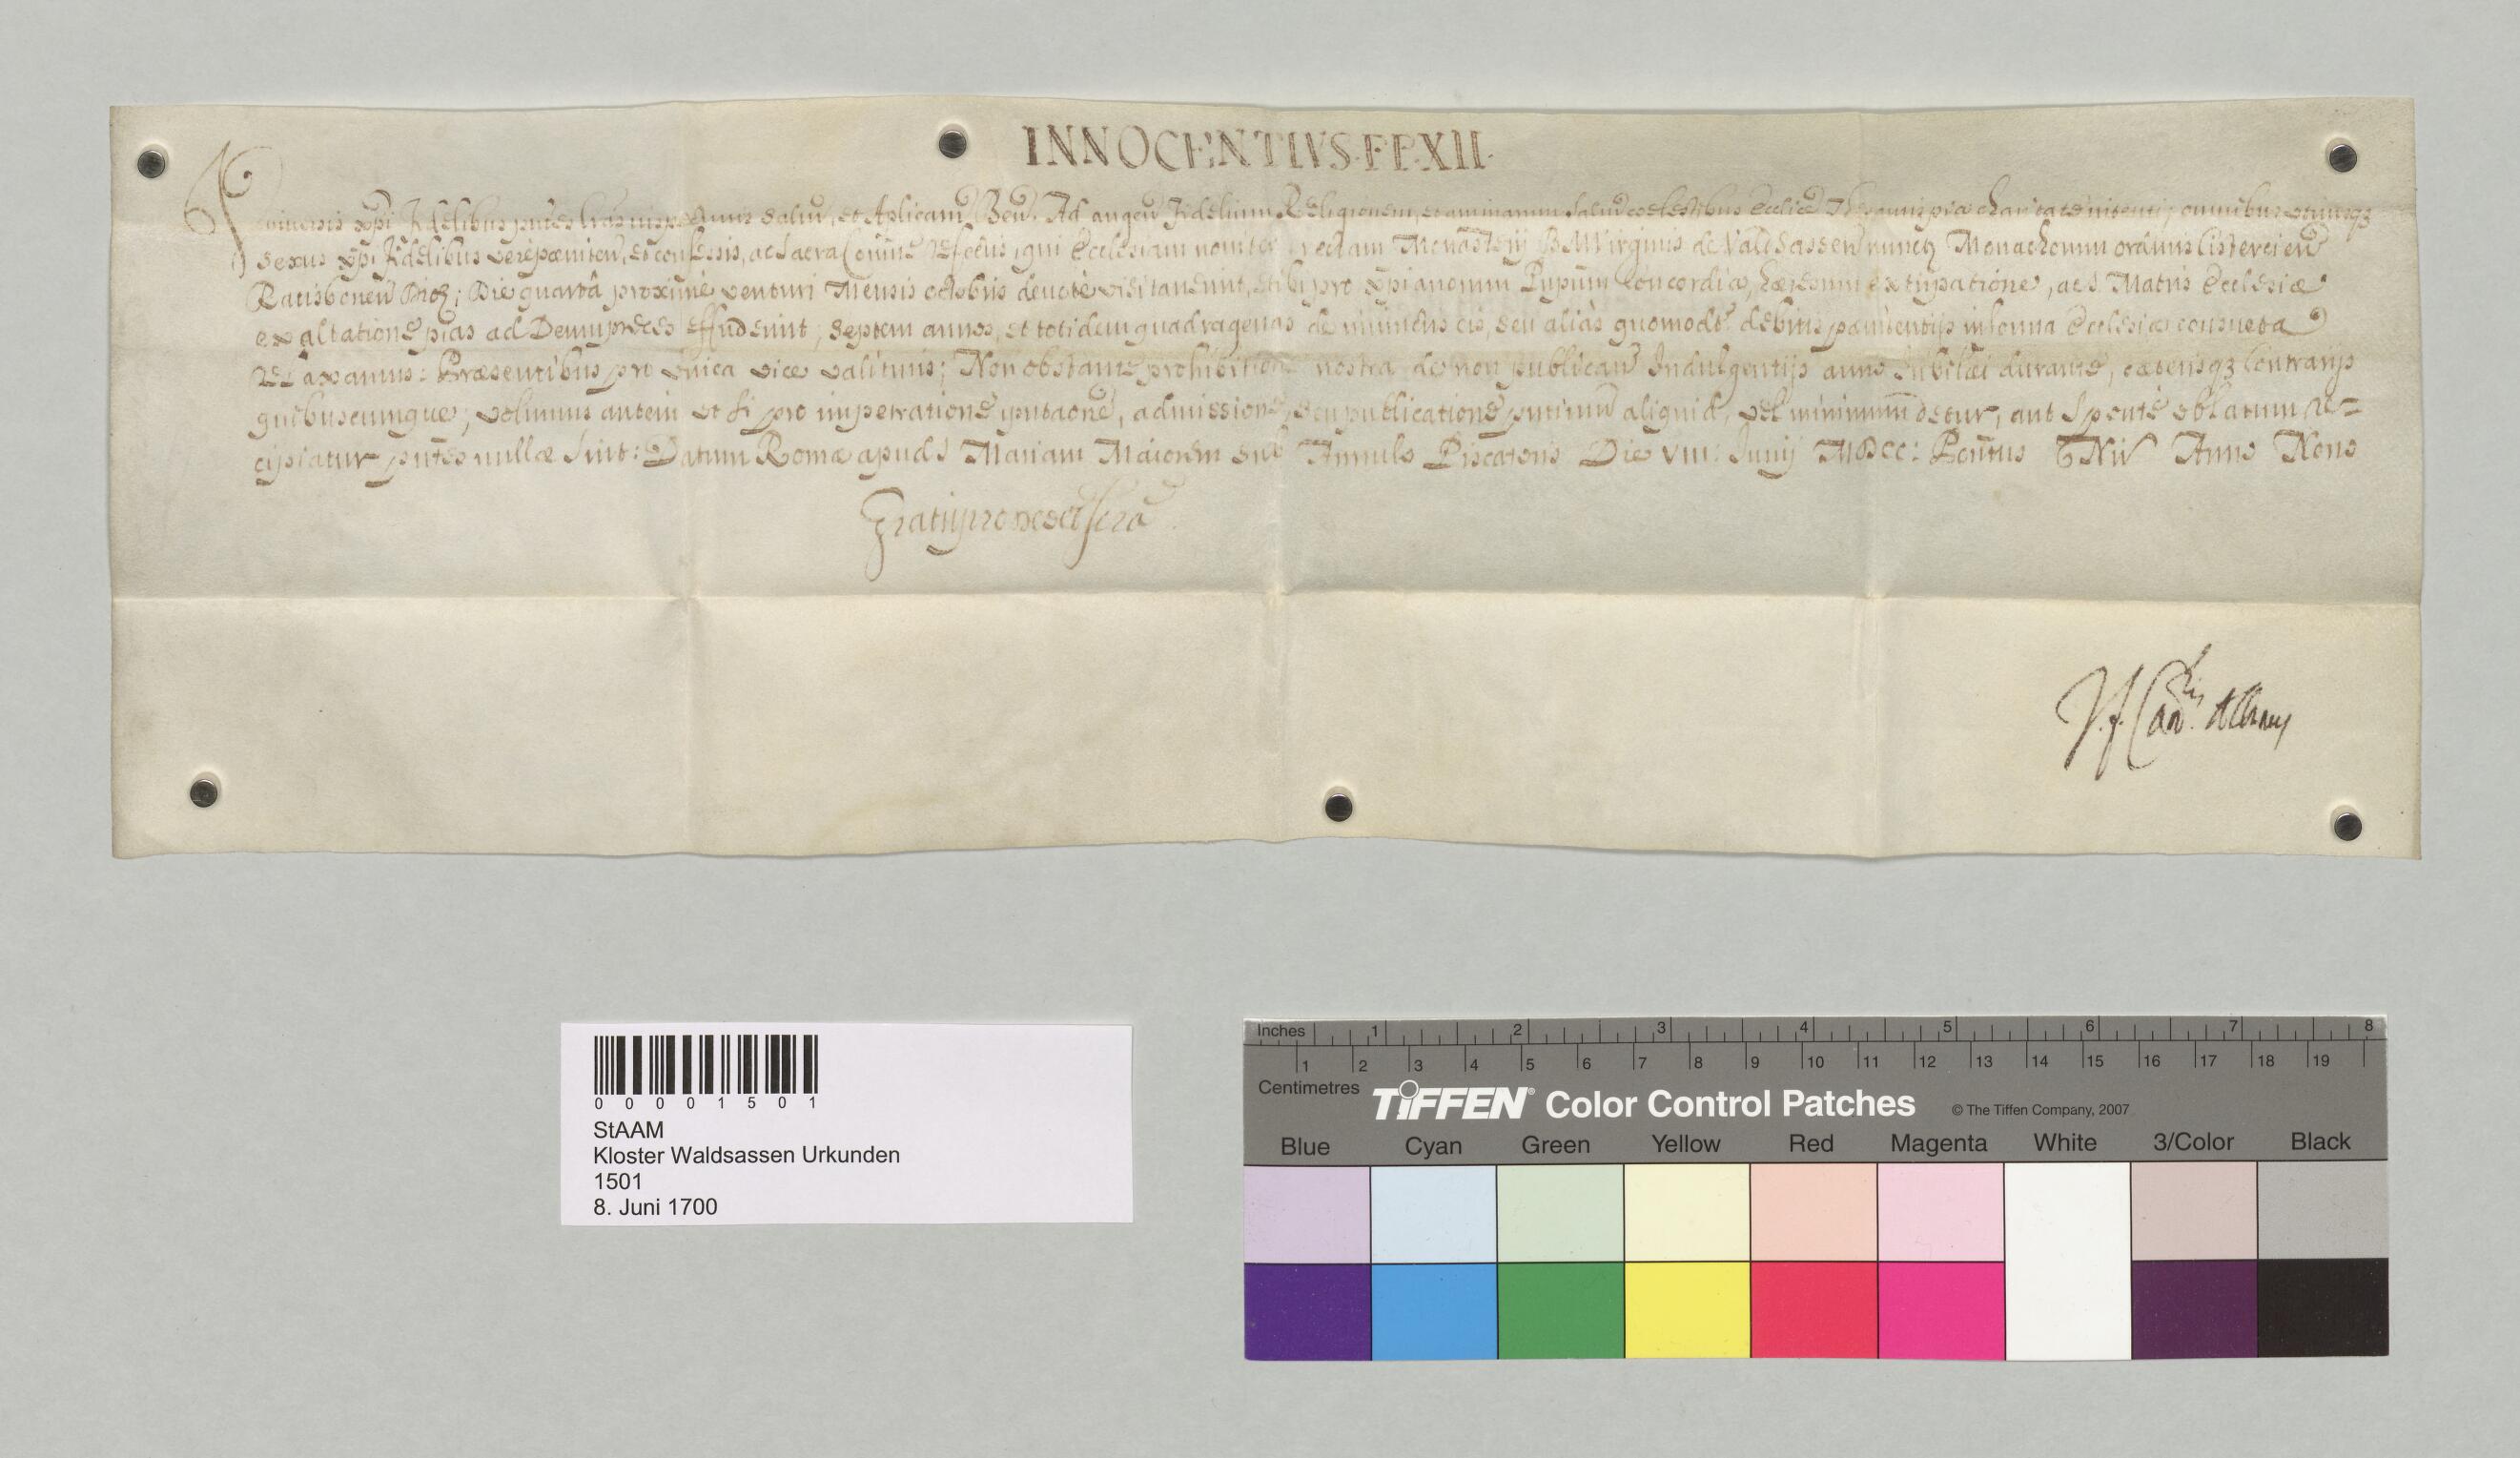 INNOCENTIVS·PP·XII·
Vniuersis xpi Fidelibus pntes lras inspecturis Salũ, et Aplicam Ben. Ad augen Fidelium Religionem, et animarum Salũ coelestibus Ecclie Thesauris pia charitate intenti, omnibus vtriusqz
Sexus xpi Fidelibus verè poeniten, et confessis, ac Sacra Comne refectis, qui Ecclesiam Monasterij B.M. Virginis de Valdsassen nuncup Monachorum ordinis Cistercien
Ratisbonen Dioc; Die quarta proximè venturi Mensis octobris deuotè visitauerint, et ibi pro xpianorum Prpum Concordia, haeresum extirpatione, ac S. Matris Ecclesiæ
exaltatione pias ad Deum preces effuderint; Septem annos, et totidem quadragenas de iniunctis eis, seu aliàs quomodt. debitis pænitentijs in forma Ecclesiæ consueta
relaxamus: Præsentibus pro vnica vice valituris; Non obstante prohibitione nostra de non publican Indulgentijs anno Iubilæi durante, cæterisqz Contrarijs
quibuscumque; volumus autem vt si pro impetratione, pntaone, admissione, seu publicatione pntium aliquid, vel minimum detur, aut Sponte oblatum re=
cipiatur pntes nullæ Sint: Datum Romæ apud S Mariam Maiorem Sub Annulo Piscatoris Die VIII: Junij MDCC: Pontus Nri Anno Nono
Gratis pro Deo et scra
J. f. Card.lis Albany
0 0 0 0 1 5 0 1
StAAM
Kloster Waldsassen Urkunden
1501
8. Juni 1700
Inches 1 2 3 4 5 6 7 8
1 2 3 4 5 6 7 8 9 10 11 12 13 14 15 16 17 18 19
Centimetres
TIFFEN® Color Control Patches © The Tiffen Company, 2007
Blue Cyan Green Yellow Red Magenta White 3/Color Black